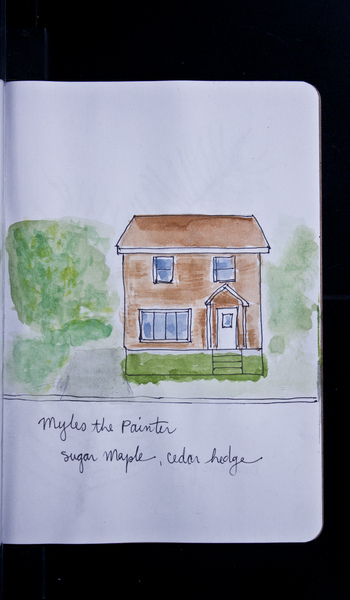 Myles the Painter
sugar Maple, cedar hedge